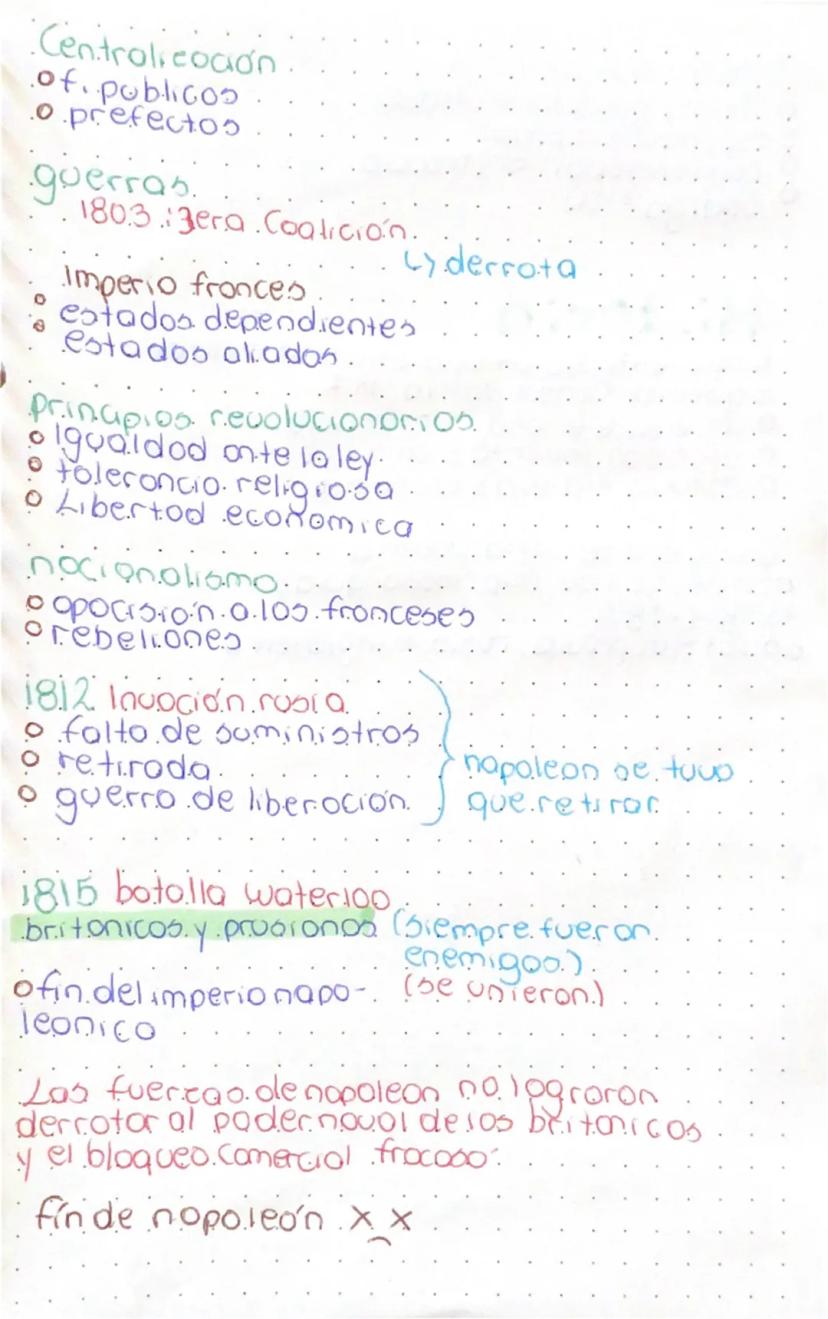 Centralización
f. publicos
prefectos
guerras
1803: 3era Coalición
↳ derrota
Imperio frances
estados dependientes
estados aliados
principios revolucionarios
Igualdad ante la ley
tolerancia religiosa
Libertad economica
nacionalismo
oposisión a los franceses
rebeliones
1812 Invación rusia
falta de suministros
retirada
guerra de liberación
napoleon se tuvo
que retirar
1815 batalla waterloo
britanicos y prusianos (siempre fueron
enemigos)
fin del imperio napo- (se unieron)
leonico
Las fuerzas de napoleon no lograron
derrotar al poder naval de los britanicos
y el bloqueo comercial fracaso
fin de napoleón x_x